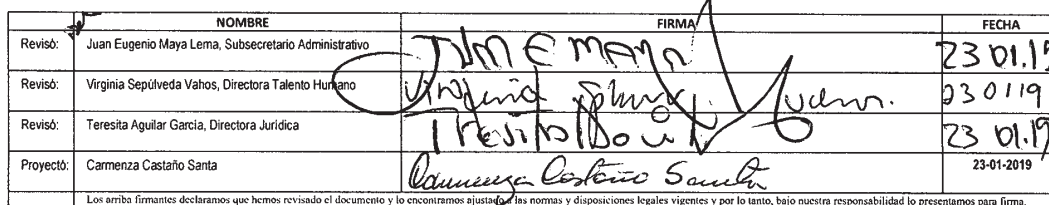 NOMBRE FIRMA FECHA
Revisó: Juan Eugenio Maya Lema, Subsecretario Administrativo 23 01.19
Revisó: Virginia Sepúlveda Vahos, Directora Talento Humano Virginia 230119
Revisó: Teresita Aguilar García, Directora Jurídica 23 01.19
Proyectó: Carmenza Castaño Santa Carmenza Castaño Santa 23-01-2019
Los arriba firmantes declaramos que hemos revisado el documento y lo encontramos ajustado a las normas y disposiciones legales vigentes y por lo tanto, bajo nuestra responsabilidad lo presentamos para firma.